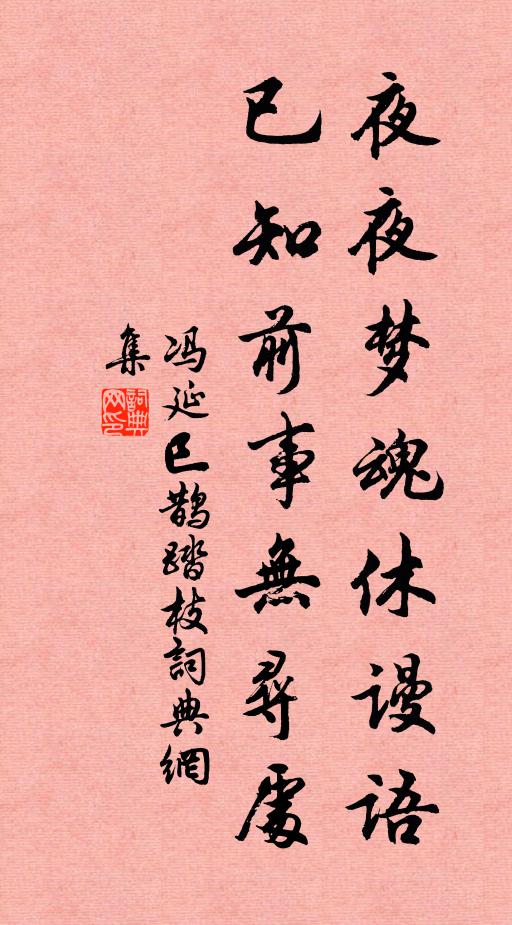 夜夜梦魂休谩语
已知前事無尋處
冯延巳鹊踏枝詞典網
集
詞典网印